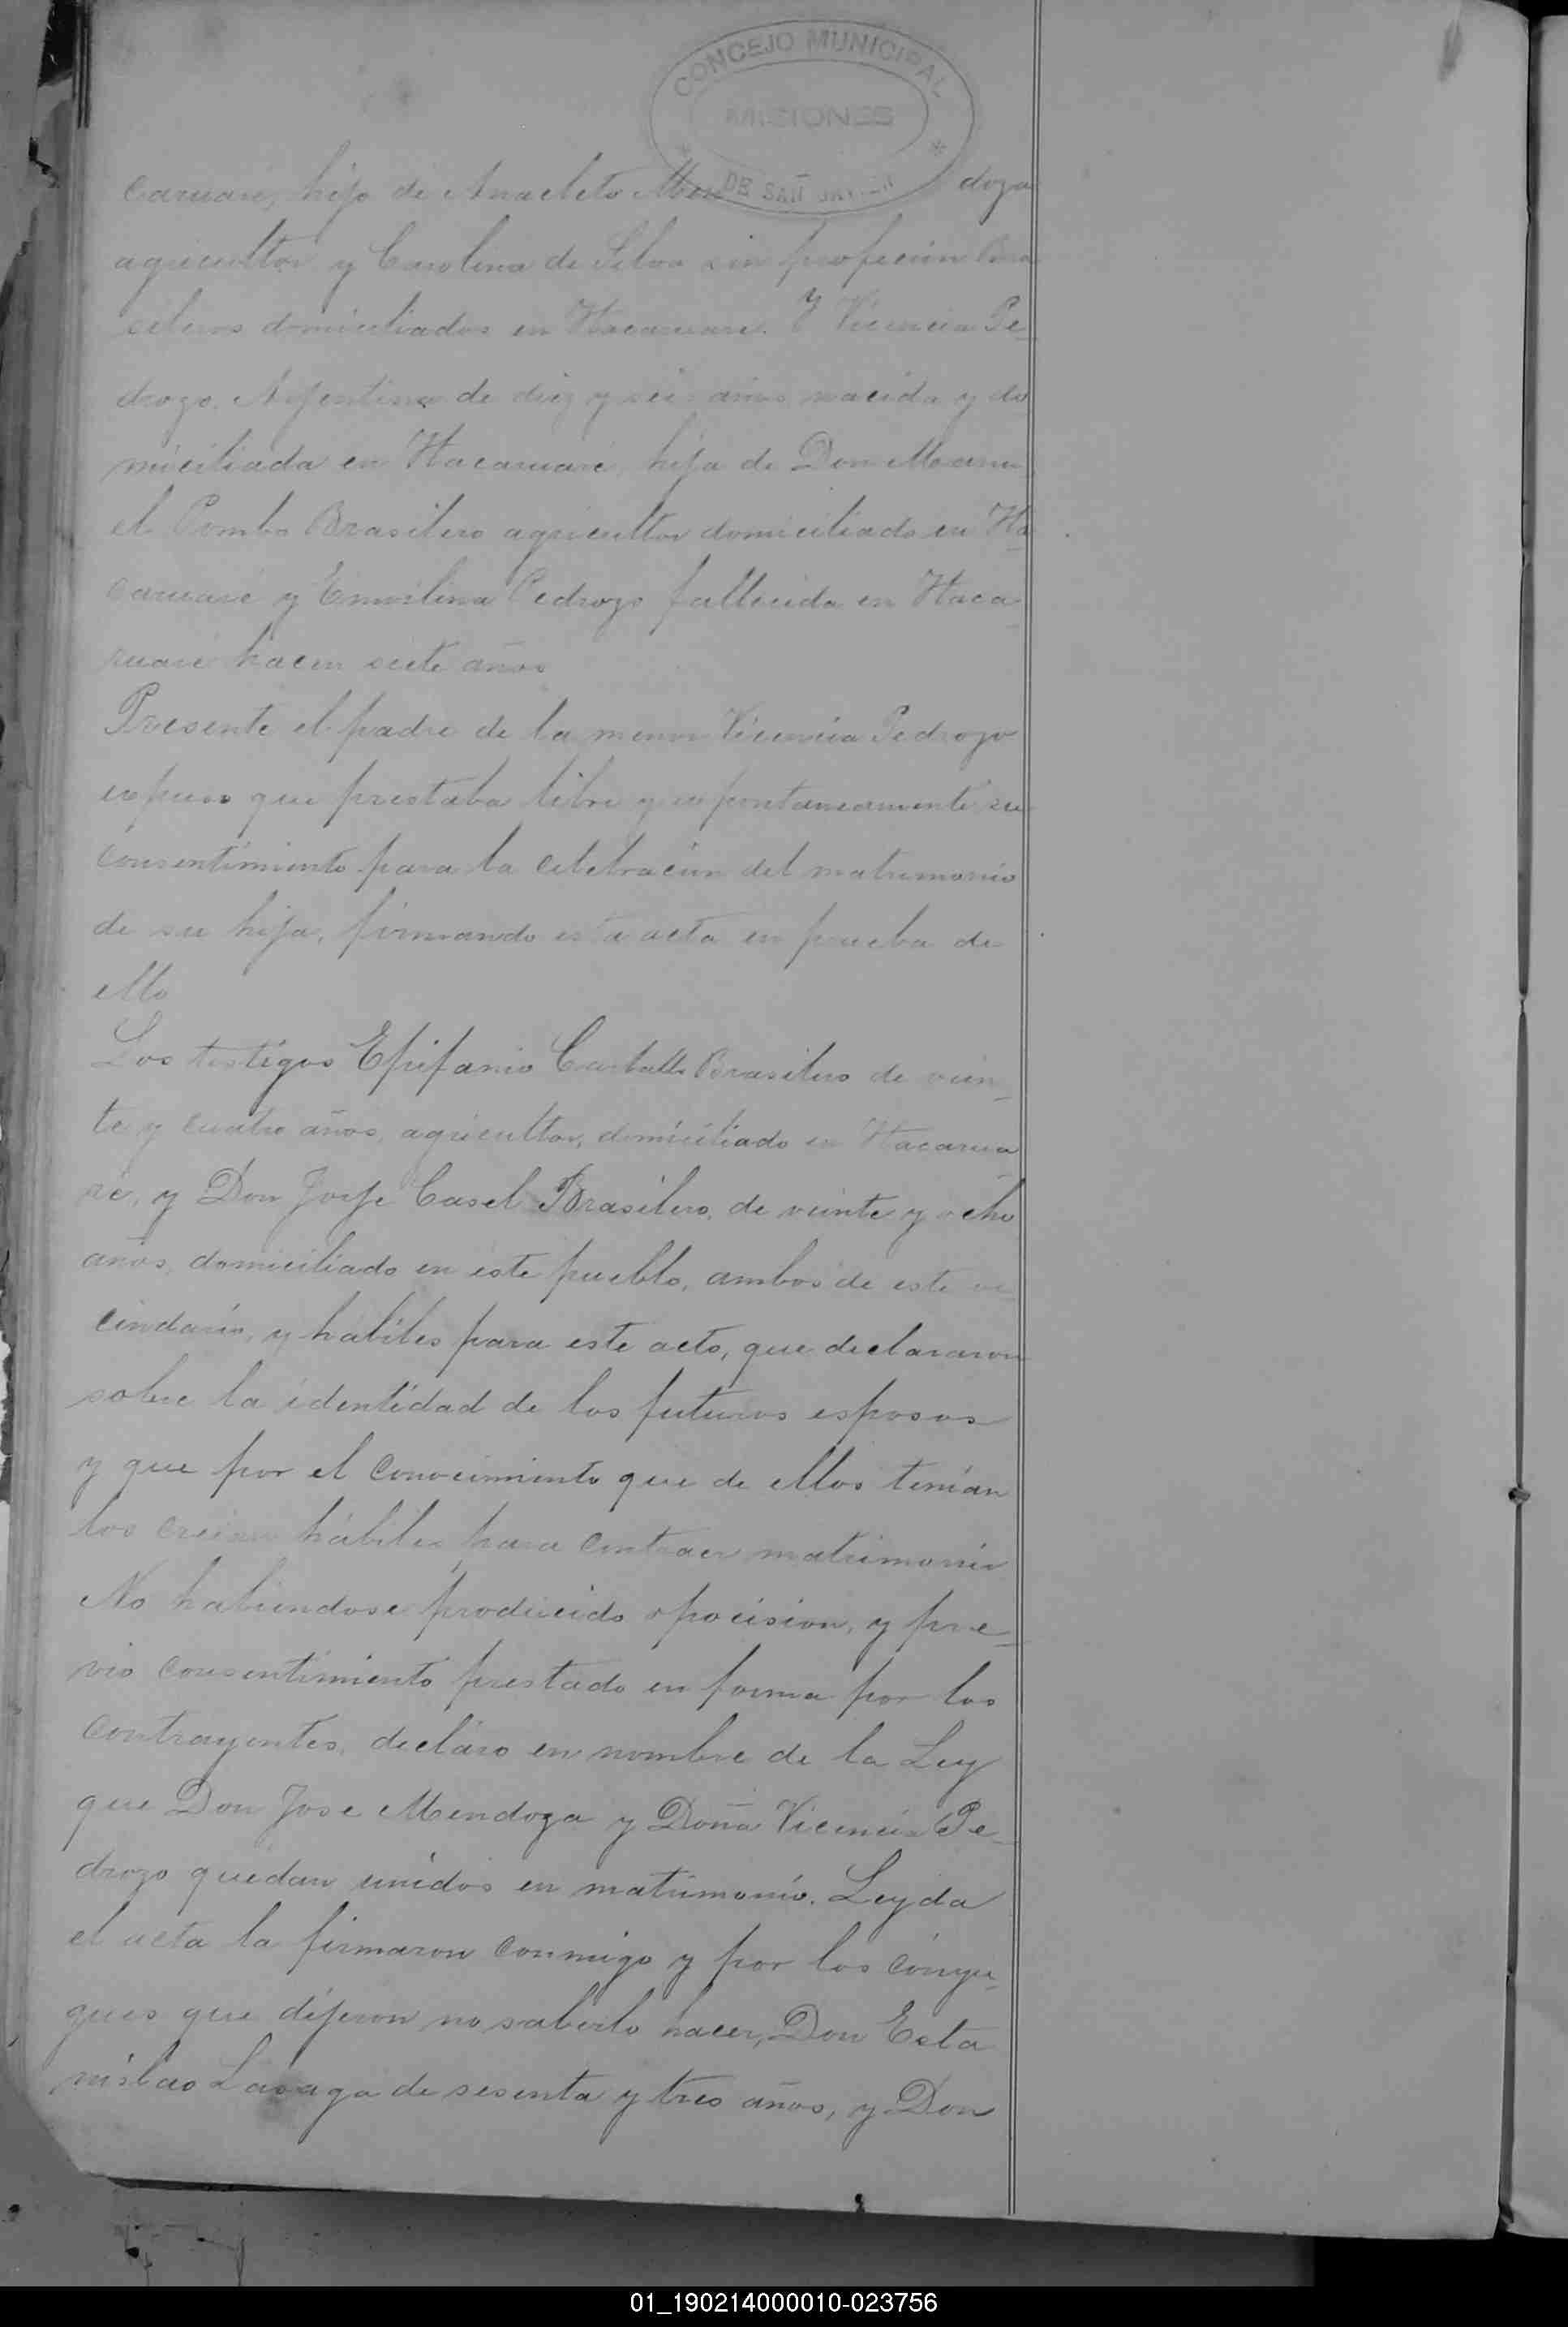 CONCEJO MUNICIPAL
MISIONES
DE SAN JAVIER
caruare, hijo de Anacleto Men doza
agricultor y Carolina de Silva sin profecion Bra
sileros domiciliados en Itacaruare. y Vicencia Pe_
drozo. Argentina de diez y seis años nacida y do
miciliada en Itacaruare, hija de Don Manu_
el Pombo Brasilero agricultor domiciliado en Ita_
caruare y Emerlina Pedrozo fallecida en Itaca_
ruare hacen siete años
Presente el padre de la menor Vicencia Pedrozo
expuso que prestaba libre y espontaneamente su
consentimiento para la celebracion del matrimonio
de su hija, firmando esta acta en prueba de
ello
Los testigos Epifanio Carballo Brasilero de vein_
te y cuatro años, agricultor, domiciliado en Itacarua_
re, y Don Jorje Casel Brasilero, de veinte y ocho
años, domiciliado en este pueblo, ambos de este ve_
cindario, y habiles para este acto, que declararon
sobre la identidad de los futuros esposos
y que por el conocimiento que de ellos tenían
los creian hábiles para contraer matrimonio
No habiendose producido opocision, y pre_
vio consentimiento prestado en forma por los
contrayentes, decláro en nombre de la Ley
que Don Jose Mendoza y Doña Vicencia Pe_
drozo quedan unidos en matrimonio. Leyda
el acta la firmaron conmigo y por los cónyu_
gues que dijeron no saberlo hacer, Don Esta
nislao Lasaga de sesenta y tres años, y Don
01_190214000010-023756